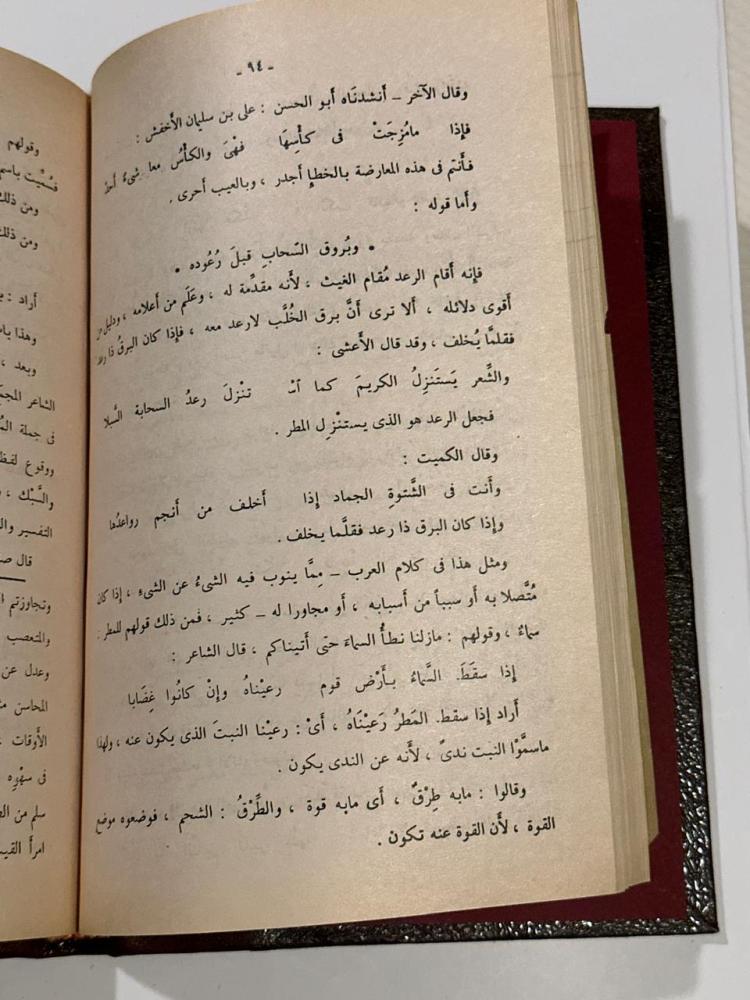 - ٩٤ -
وقال الآخر – أنشدنَاه أبو الحسن : على بن سليمان الأخفش :
فإذا مامُزِجَتْ فى كأْسِهَا فَهْىَ والكأْسُ معا شىءُ أحد
فأَنتم فى هذه المعارضة بالخطإِ أجدر ، وبالعيب أحرى .
وأما قوله :
• وبُروق السّحابِ قبلَ رُعُوده •
فإنه أقام الرعد مُقام الغيث ، لأَنه مقدِّمة له ، وعَلَم من أعلامه ، ودليل من
أقوى دلائله ، ألا ترى أنَّ برق الخُلَّب لارعد معه ، فإذا كان البرقُ ذا رعد
فقلمَّا يُخلف ، وقد قال الأَعشى :
والشِّعر يَستَنزِلُ الكريمَ كما اسْـ تنْزلَ رعدُ السحابة السَّبلا
فجعل الرعد هو الذى يستنْزِل المطر .
وقال الكميت :
وأَنت فى الشَّتوةِ الجماد إذا أخلف من أنجم رواعدُها
وإذا كان البرق ذا رعد فقلَّما يخلف .
ومثل هذا فى كلام العرب – مِمَّا ينوب فيه الشىءُ عن الشىءِ ، إذا كان
مُتَّصلا به أو سبباً من أسبابه ، أو مجاورا له – كثير ، فمن ذلك قولهم للمطر :
سماءٌ ، وقولهم : مازلنا نطأُ السماءَ حتى أتيناكم ، قال الشاعر :
إذا سقَطَ السَّماءُ بأَرْض قوم رعيْناهُ وإنْ كانُوا غِضَابا
أراد إذا سقط المَطرُ رَعيْنَاهُ ، أىْ : رعيْنا النبتَ الذى يكون عنه ، ولهذا
ماسمَّوْا النبت ندىً ، لأَنه عن الندى يكون .
وقالوا : مابه طِرْقٌ ، أى مابه قوة ، والطِّرْقُ : الشحم ، فوضعوه موضع
القوة ، لأن القوة عنه تكون .
وقولهم
ومن ذلك
ومن ذلك
أراد :
وبعد ،
الشاعر
فى جملة
ووقوع
والسَّبْك ،
وتجاوزتم
والمتعصب
وعدل عن
المحاسن
الأَوقات
فى سهْوِه
سلم من